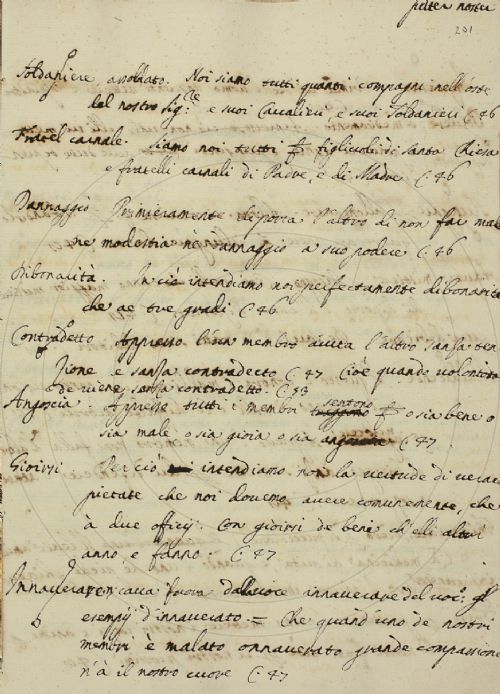 pater noster
201
Soldaniere, assoldato. Noi siamo tutti quanti compagni nell'oste
del nostro Sig.re e suoi Cavalieri, e suoi Soldanieri C. 46
Fratel carnale. Siamo noi tutti figliuoli di Santa Chiesa
e fratelli carnali di Padre, e di Madre C. 46
Dannaggio Primieramente si porta l'altro di non far male
ne modestia ne dannaggio a suo podere C. 46
Dibonarità. In ciò intendiamo noi perfectamente dibonarità
che ae tre gradi C. 46
Contradetto Appresso l'un membro aiuta l'altro sansa ten
zione e sansa contradecto C. 47 Cioè quando volontà
de viene sansa contradetto. C. 53
Angoscia Appresse tutti i membri sentono o sia bene o
sia male o sia gioia o sia C. 47.
Gioirsi Per ciò intendiamo noi la vertude di verace
pietate che noi dovemo avere comunemente, che
à due officij. Con gioirsi de beni ch'elli altri
anno e fanno. C. 47
Innaverare cava fuora dalle voce innaverare del voc.o gl
esempij d'innaverato. = Che quand'uno de nostri
membri è malato o innaverato grande compassione
n'à il nostro cuore C. 47